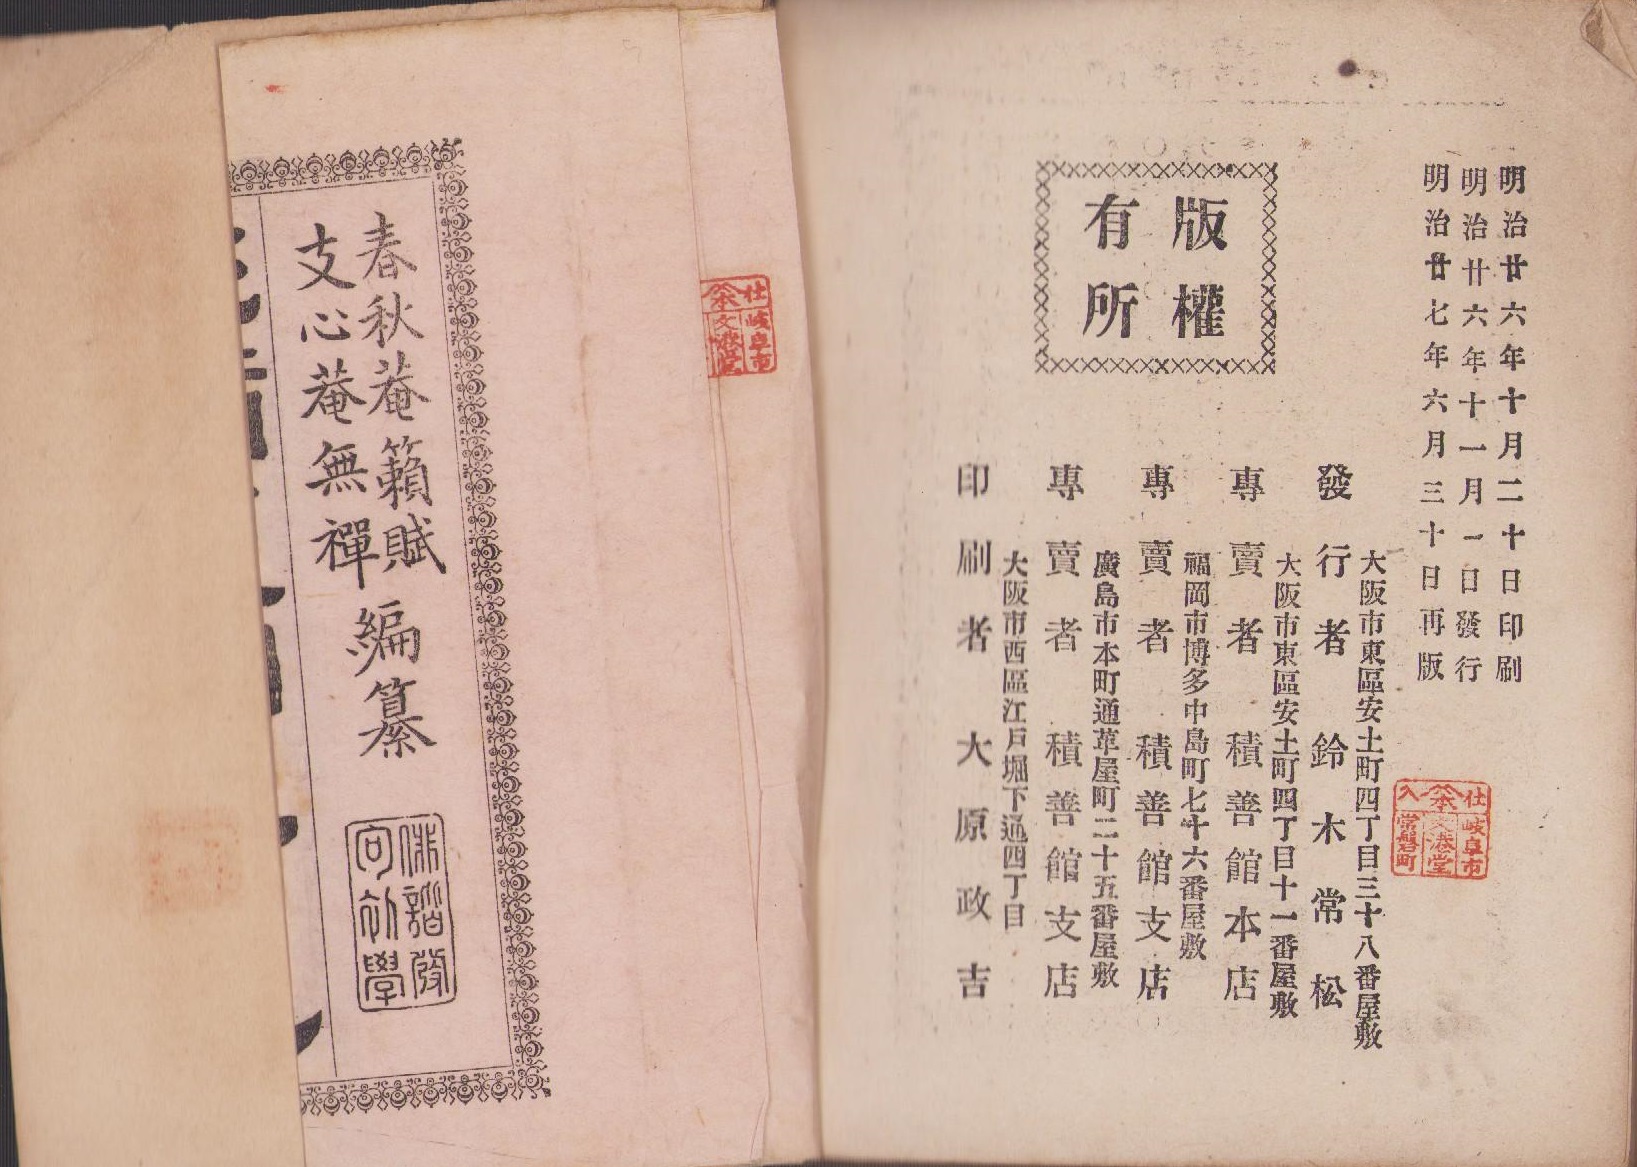 明治廿六年十月二十日印刷
明治廿六年十一月一日發行
明治廿七年六月三十日再版
版權
有所
大阪市東區安土町四丁目三十八番屋敷
發行者 鈴木常松
大阪市東區安土町四丁目十一番屋敷
專賣者 積善館本店
福岡市博多中島町七十六番屋敷
專賣者 積善館支店
廣島市本町通革屋町二十五番屋敷
專賣者 積善館支店
大阪市西區江戸堀下通四丁目
印刷者 大原政吉
仕入
岐阜市
文港堂
常磐町
仕
岐阜市
文港堂
春秋菴籟賦
支心菴無禪
編纂
俳諧發
句初學